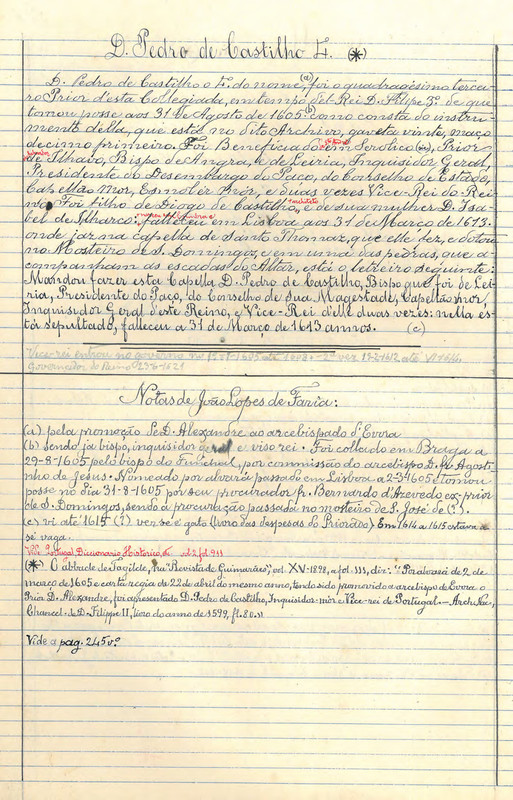 D. Pedro de Castilho 1. (*)
D. Pedro de Castilho o 1. do nome, (a) foi o quadragesimo tercei-
ro Prior d'esta Collegiada, em tempo d'el-Rei D. Filipe 3º de que
tomou posse aos 31 de Agosto de 1605: (b) como consta do instru-
mento della, que está no dito Archivo, gaveta vinte, maço
decimo primeiro. Foi Beneficiado em Prior
de Ilhavo, Bispo de Angra, e de Leiria, Inquisidor Geral,
Presidente do Desembargo do Paço, do Conselho de Estado,
Capellão Mor, Esmoler Mór, e duas vezes Vice-Rei do Rei-
no. Foi filho de Diogo de Castilho, architeto e de sua mulher D. Isa-
bel de Ilharco: falleceu em Lisboa aos 31 de Março de 1613.
onde jaz na capella de Santo Thomaz, que elle fez, e dotou
no Mosteiro de S. Domingos, e em uma das pedras, que a-
companham as escadas do Altar, está o letreiro seguinte:
Mandou fazer esta Capella D. Pedro de Castilho, Bispo que foi de Lei-
ria, Presidente do Paço, do Conselho de Sua Magestade, Capellão mór,
Inquisidor Geral d'este Reino, e Vice-Rei d'elle duas vezes: nella es-
tá sepultado, falleceu a 31 de Março de 1613 annos. (c)
Vice-rei entrou no governo no
Governador do Reino
Notas de João Lopes de Faria:
(a) pela promoção de D. Alexandre ao arcebispado d'Evora
(b) sendo já bispo, inquisidor geral e viso rei. Foi collado em Braga a
29-8-1605 pelo bispo do Funchal, por commissão do arcebispo D. fr. Agosti-
nho de Jesus. Nomeado por alvará passado em Lisboa a 2-3-1605 e tomou
posse no dia 31-8-1605 por seu procurador fr. Bernardo d'Azevedo ex-prior
de S. Domingos, sendo a procuração passada no mosteiro de S. José de (?).
(c) vi até 1615 (?) ver se é gato (livro das despesas do Priorado) Em 1614 a 1615 estava a
sé vaga.
Vide Portugal, Diccionario Historico, etc vol. 2 fol. 911
(*) O abbade de Tagilde, na "Revista de Guimarães", vol. XV-1898, a fol. 111, diz: "Por alvará de 2 de
março de 1605 e carta regia de 22 de abril do mesmo anno, tendo sido promovido a arcebispo de Evora o
Prior D. Alexandre, foi apresentado D. Pedro de Castilho, Inquisidor-mór e Vice-rei de Portugal. — Arch. Nac.,
Chancel. de D. Filippe II, livro do anno de 1599, fl. 80."
Vide a pag. 245 vº